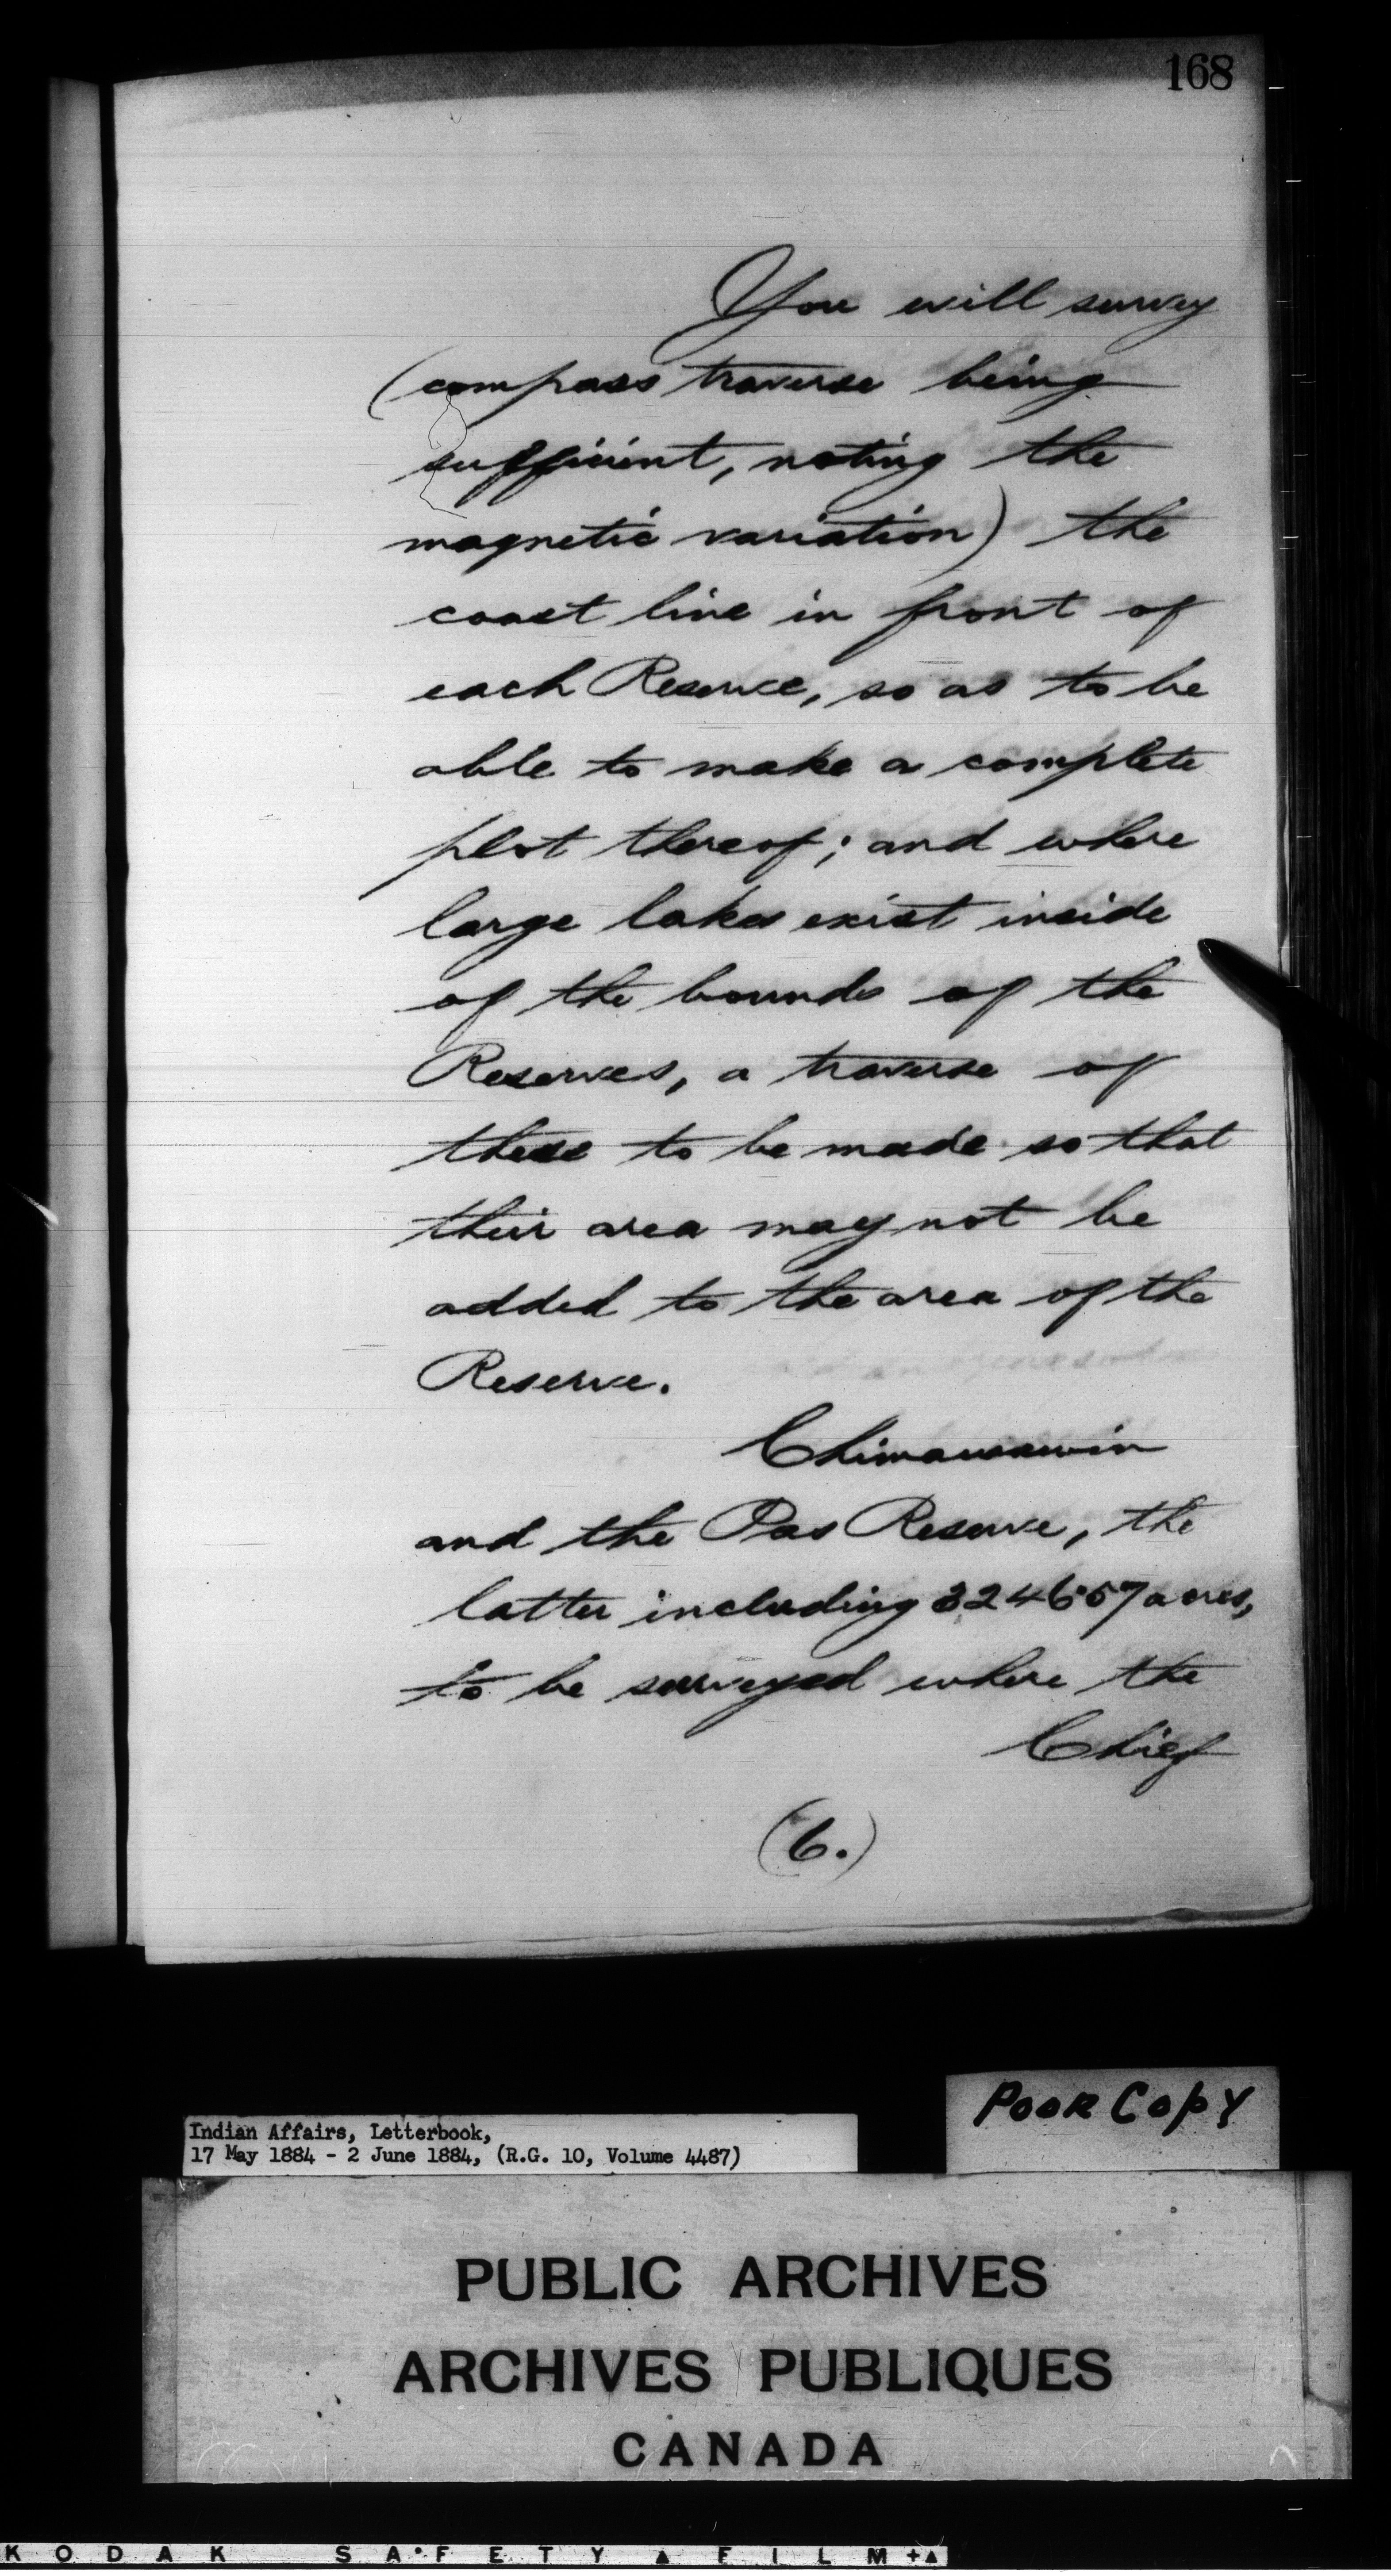 168
You will survey
(compass traverse being
sufficient, noting the
magnetic variation) the
coast line in front of
each Reserve, so as to be
able to make a complete
plot thereof; and where
large lakes exist inside
of the bounds of the
Reserves, a traverse of
these to be made so that
their area may not be
added to the area of the
Reserve.
Chimawawin
and the Pas Reserve, the
latter including acres,
to be surveyed where the
Chief
(6.)
POOR COPY
Indian Affairs, Letterbook,
17 May 1884 - 2 June 1884, (R.G. 10, Volume 4487)
PUBLIC ARCHIVES
ARCHIVES PUBLIQUES
CANADA
KODAK SAFETY FILM